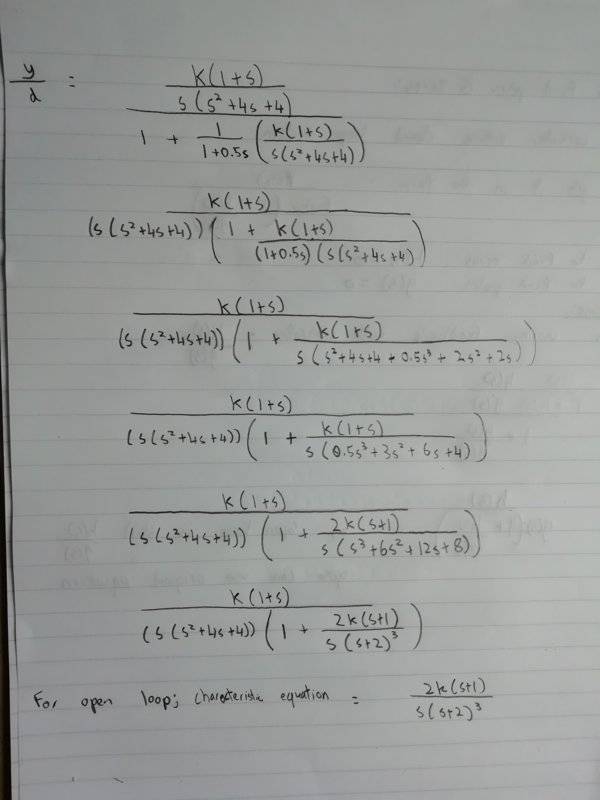 y/d = (K(1+s) / s(s²+4s+4)) / (1 + 1/(1+0.5s) (K(1+s) / s(s²+4s+4)))
K(1+s) / ((s(s²+4s+4)) (1 + K(1+s) / (1+0.5s)(s(s²+4s+4)))
K(1+s) / ((s(s²+4s+4)) (1 + K(1+s) / s(s²+4s+4+0.5s³+2s²+2s)))
K(1+s) / ((s(s²+4s+4)) (1 + K(1+s) / s(0.5s³+3s²+6s+4)))
K(1+s) / ((s(s²+4s+4)) (1 + 2K(s+1) / s(s³+6s²+12s+8)))
K(1+s) / ((s(s²+4s+4)) (1 + 2K(s+1) / s(s+2)³))
For open loop; characteristic equation = 2K(s+1) / s(s+2)³